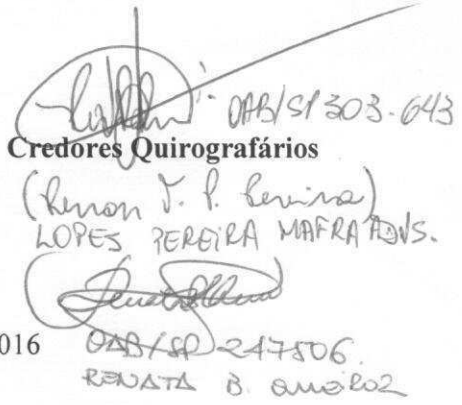 OAB/SP 303.643
Credores Quirografários
(Renan J. P. Pereira)
LOPES PEREIRA MAFRA ADVS.
016
OAB/SP 247506.
RENATA B. QUEIROZ